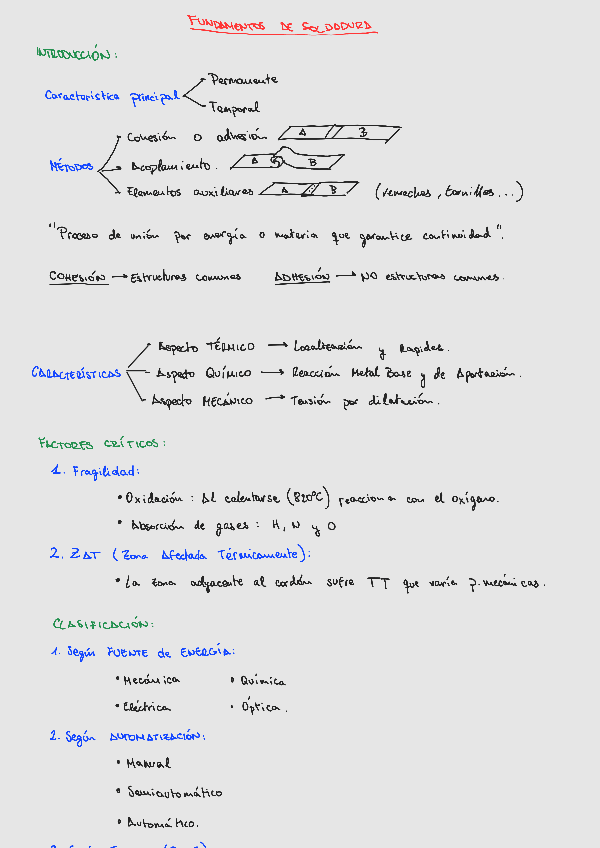 FUNDAMENTOS DE SOLDADURA
INTRODUCCIÓN:
Característica principal
Permanente
Temporal
MÉTODOS
Cohesión o adhesión A B
Acoplamiento. A B
Elementos auxiliares A B (remaches, tornillos...)
"Proceso de unión por energía o materia que garantice continuidad".
COHESIÓN → Estructuras comunes ADHESIÓN → NO estructuras comunes.
CARACTERÍSTICAS
Aspecto TÉRMICO → Localización y Rapidez.
Aspecto QUÍMICO → Reacción Metal Base y de Aportación.
Aspecto MECÁNICO → Tensión por dilatación.
FACTORES CRÍTICOS:
1. Fragilidad:
• Oxidación: Al calentarse (820ºC) reacciona con el oxígeno.
• Absorción de gases: H, N y O
2. ZAT (Zona Afectada Térmicamente):
• La zona adyacente al cordón sufre TT que varía p. mecánicas.
CLASIFICACIÓN:
1. Según FUENTE de ENERGÍA:
• Mecánica • Química
• Eléctrica • Óptica.
2. Según AUTOMATIZACIÓN:
• Manual
• Semiautomático
• Automático.